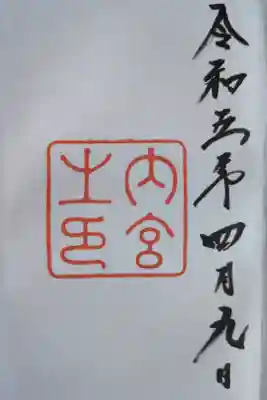 令和五年四月九日
内宮
之印